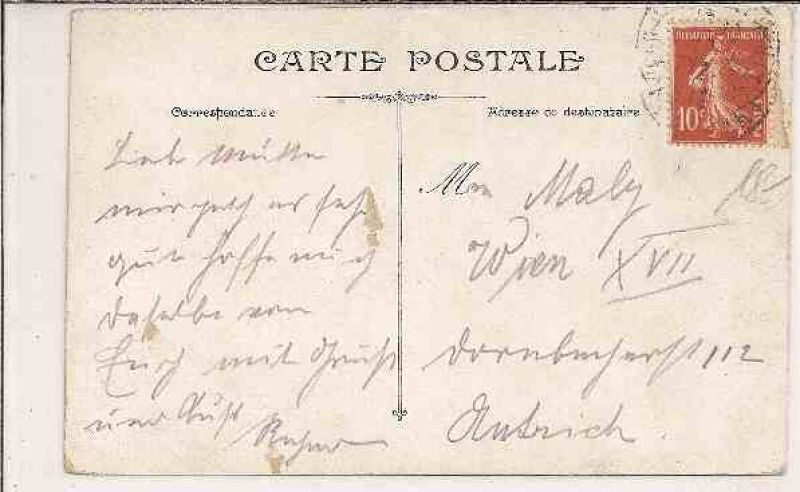 CARTE POSTALE
Correspondance
Liebe Mutter
mir geht es sehr
gut hoffe auch
daselbe von
Euch mit Gruß
und Kuß
Adresse du destinataire
REPUBLIQUE FRANÇAISE
10c
Maly
Wien XVII
Dornbacherst 112
Autrich.